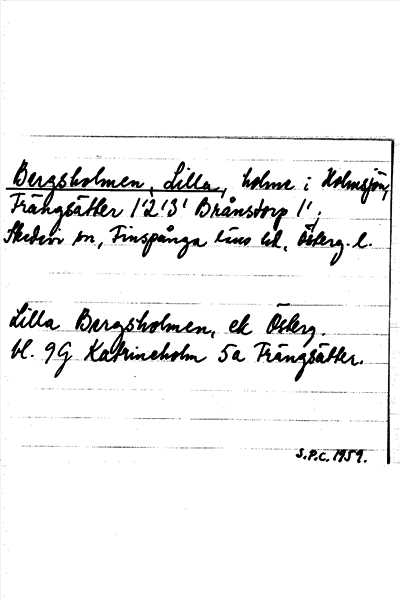 Bergsholmen, Lilla, holme i Holmsjön,
Trängsätter 1'2'3' Brånstorp 1',
Skedevi sn, Finspånga läns hd, Österg. l.
Lilla Bergsholmen, ek Österg.
bl. 9G Katrineholm 5a Trängsätter.
S.P.C. 1959.